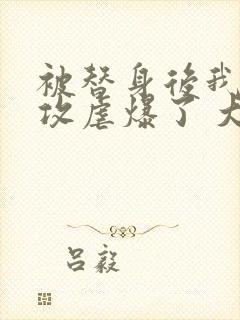 被替身後我
攻虐爆了 大
吕毅